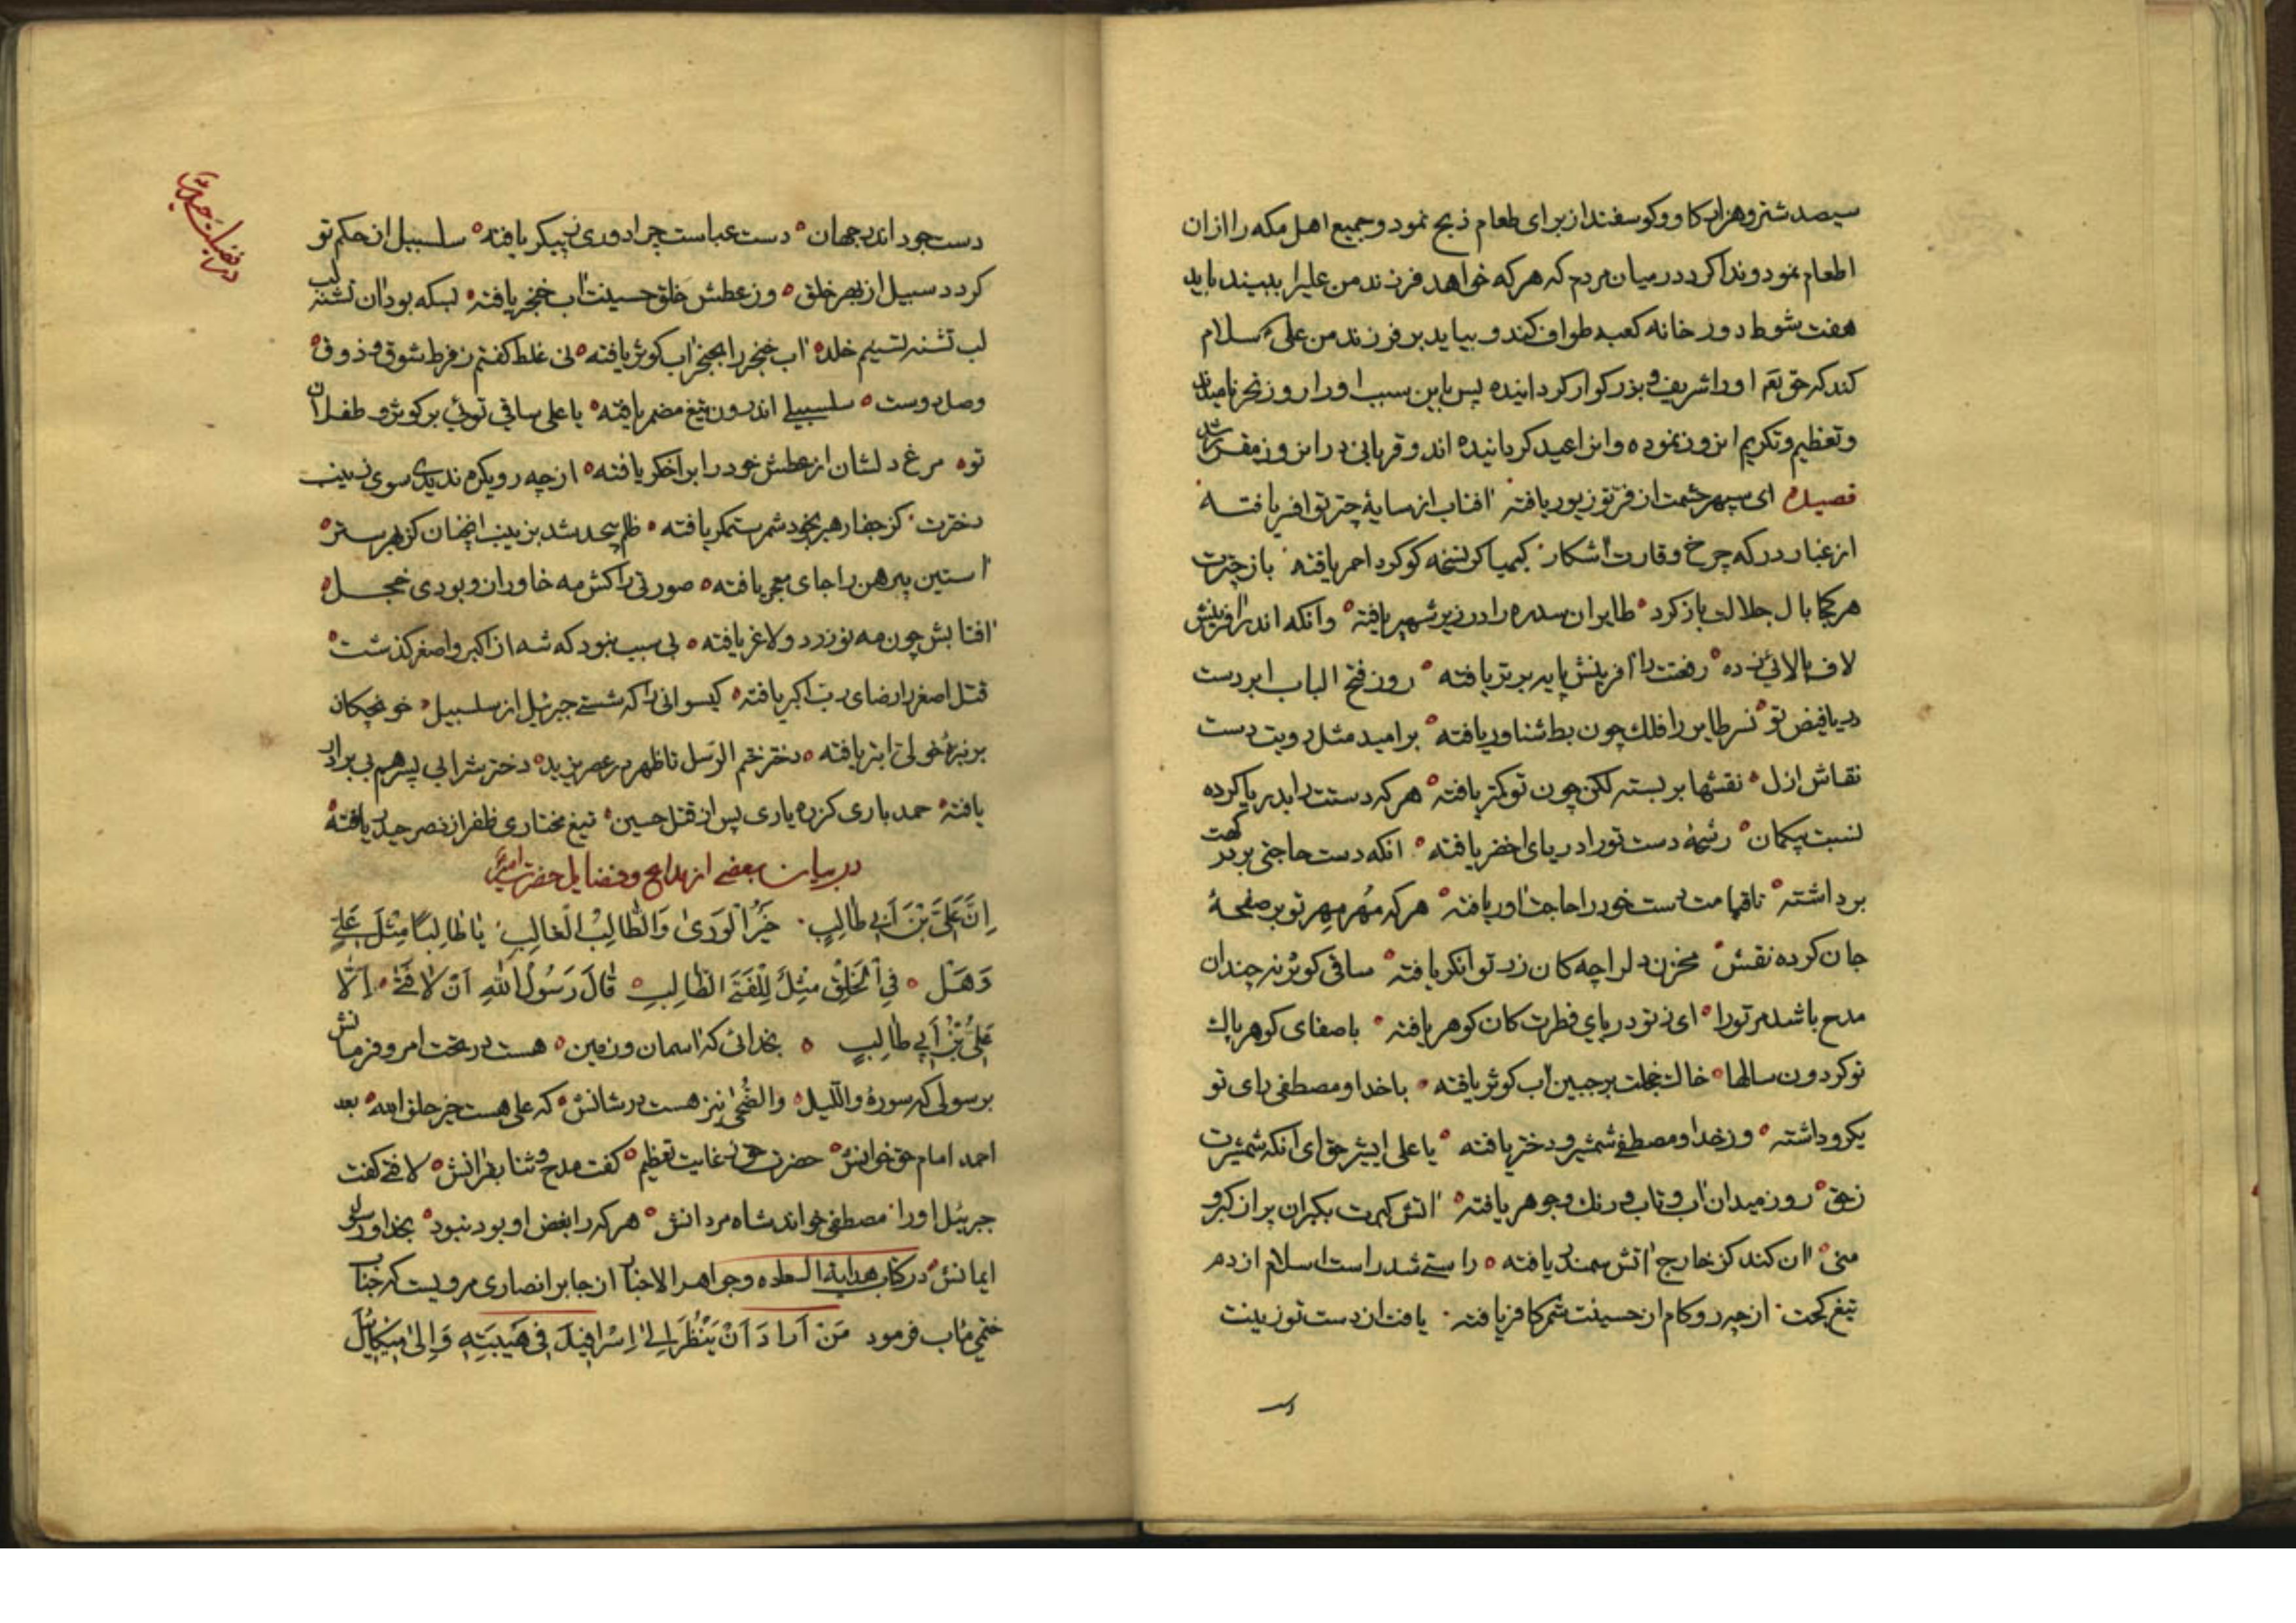 سیصد شتر و هزار کاو و کوسفند از برای طعام ذبح نمود و جمیع اهل مکه را ازان
اطعام نمود و ندا کرد در میان مردم که هر که خواهد فرزند من علیرا ببیند باید
هفت شوط دور خانه کعبه طواف کند و بیاید بر فرزند من علی سلام
کند که حق تع اورا شریف و بزرکوار کردانیده پس باین سبب اورا روز نحر نامیدند
و تعظیم و تکریم این روز نموده و انرا عید کردانیده اند و قربانی در این روز مقرر شد
قصیده ای سپهر حشمت از فر تو زیور یافته افتاب از سایهٔ چتر تو افسر یافته
از غبار درکه چرخ وقارت آشکار کیمیا کر نسخه کوکرد احمر یافته باز چترت
هر کجا بال جلالت باز کرد طایران سدره را در زیر شهپر یافته وانکه اندر افرینش
لاف بالائی زده رفعت را افرینش پایه برتر یافته روز فتح الباب ابر دست
دریا فیض تو نسر طایر را فلك چون بط شناور یافته بر امید مثل رویت دست
نقاش ازل نقشها بر بسته لکن چون تو کمتر یافته هر که دستت را بدریا کرده
نسبت بیکمان رشحهٔ دست تورا دریای اخضر یافته انکه دست حاجتی بر درکهت
برداشته تا قیامت دست خود را حاجت اور یافته هر که مُهر مِهر تو بر صفحهٔ
جان کرده نقش مخزن دل را چه کان زر توانکر یافته ساقی کوثر نه چندان
مدح باشد مر تورا ای ز تو دریای فطرت کان کوهر یافته باصفای کوهر پاك
تو کردون سالها خاك خجلت بر جبین آب کوثر یافته با خدا و مصطفی رای تو
یکرو داشته وز خدا و مصطفی شمشیر و دختر یافته یا علی ای شیر حق ای انکه شمشیرت
ز حق روز میدان اب و تاب و رنك و جوهر یافته اتش کهرت بکبران پر از کبر و
منی ان کند کز خارج اتش سمندر یافته راستی شد راست اسلام از دم
تیغ کجت از چه رو کام از حسینت شمر کافر یافته یافت از دست تو زینت
در فضیلت حضرت
دست جود اندر جهان دست عباست چرا دوری ز پیکر یافته سلسبیل از حکم تو
کردد سبیل از بهر خلق وز عطش خلق حسینت اب خنجر یافته بسکه بود ان تشنه لب
لب تشنه تسنیم خلد اب خنجر را بحنجر اب کوثر یافته نی غلط کفتم ز فرط شوق و ذوق
وصل دوست سلسبیلی اندرون تیغ مضمر یافته یا علی ساقی توئی بر کوثر و طفلان
تو مرغ دلشان از عطش خود را بر اخکر یافته از چه رو یکره ندیدی سوی زینب
دخترت کز جفا رهبر بخود شمر ستمکر یافته ظلم بیحد شد بزینب انچنان کز بهر ستر
استین پیرهن را جای معجر یافته صورتی را کش مه خاوران و بودی خجل
افتابش چون مه نو زرد و لاغر یافته بی سبب نبود که شه از اکبر و اصغر کذشت
قتل اصغر را رضای رب اکبر یافته کیسوانی را که شستی جبرئیل از سلسبیل خونچکان
بر نیزهٔ خولی ابتر یافته دختر ختم الرسل تا ظهر در عصر یزید دختر شرابی پسر هم بی برادر
یافته حمد باری کز ره یاری پس از قتل حسین تیغ مختاری ظفر از نصر حیدر یافته
در بیان بعضی از مدایح و فضایل حضرت امیر
اِنَّ عَلِيَّ بْنَ اَبی طالِبٍ خَیْرُ الْوَری وَالطّالِبُ الْغالِبُ یا طالِبًا مِثْلَ عَلِیٍّ
وَهَلْ فِی الْخَلْقِ مِثْلَ لِلْفَتَی الطّالِبِ قالَ رَسُولُ اللهِ اَنْ لا فَتی اَلّا
عَلِیُّ بْنُ اَبی طالِبٍ بخدائی که اسمان و زمین هست در تحت امر و فرمانش
برسولی که سورهٔ واللیل والضُّحی نیز هست در شانش که علی هست خیر خلق الله بعد
احمد امام حق خوانش حضرت حق ز غایت تعظیم کفت مدح و ثنا بقرانش لا فتی کفت
جبرئیل اورا مصطفی خواند شاه مردانش هر که را بغض او بود نبود بخدا و رسول
ایمانش در کتاب هدایة السعاده و جواهر الاخبار از جابر انصاری مرویست که جناب
ختمی ماب فرمود مَنْ اَرادَ اَنْ یَنْظُرَ اِلی اِسْرافیلَ فی هَیْبَتِهِ وَ اِلی میکائیلَ